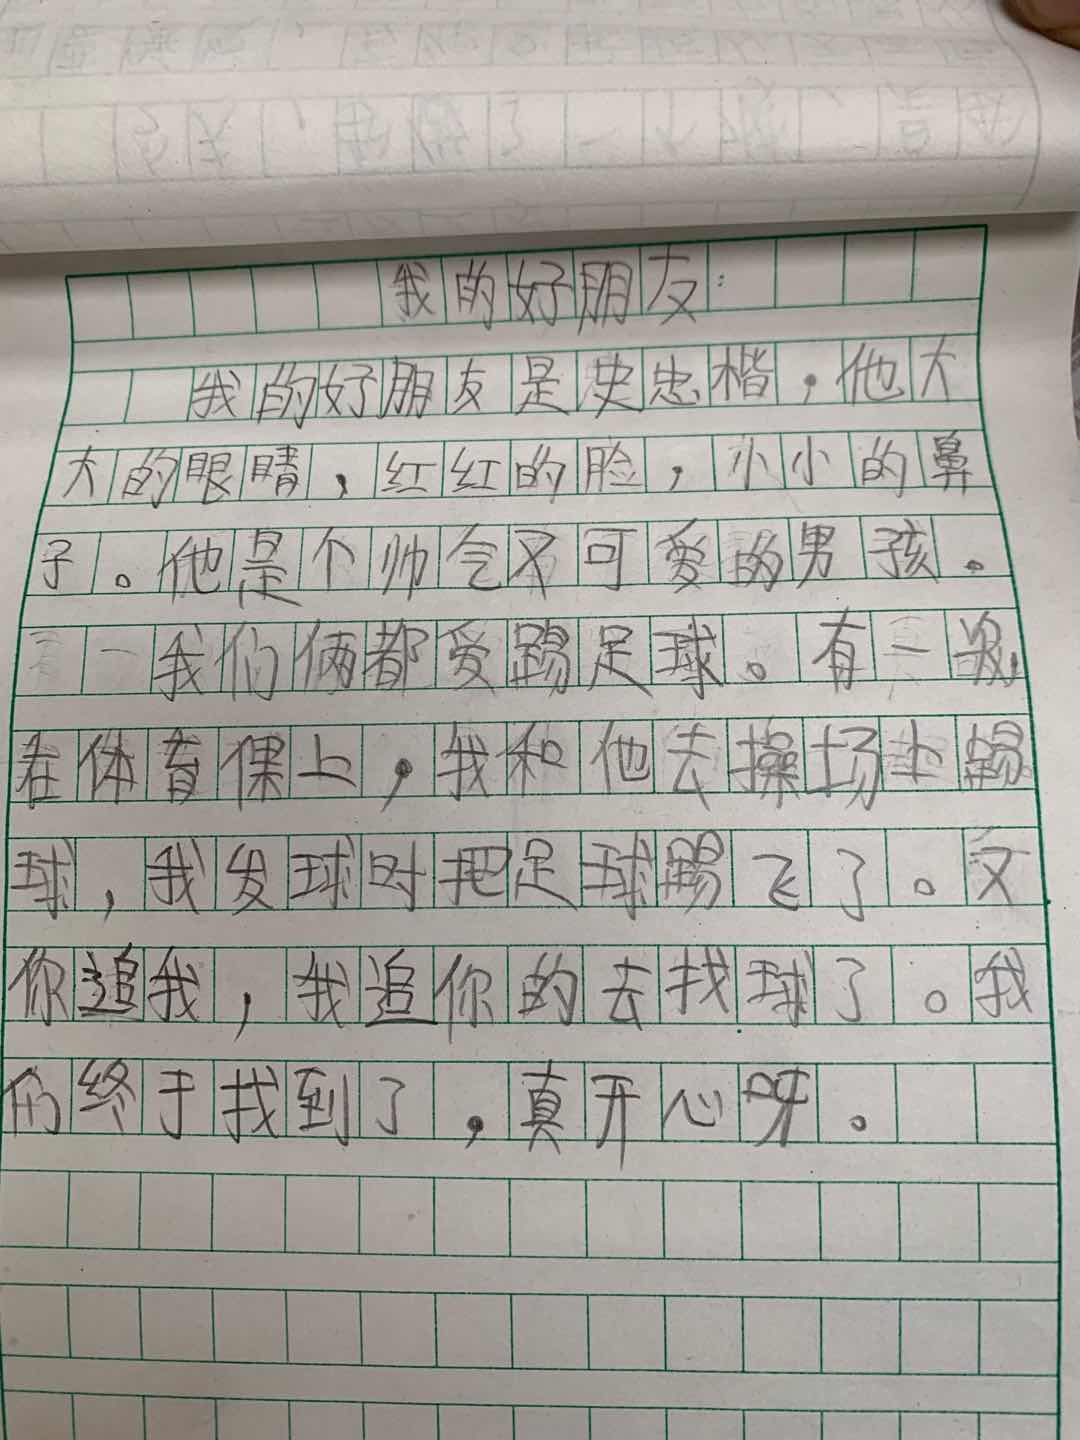 我的好朋友:
我的好朋友是史忠楷，他大
大的眼睛，红红的脸，小小的鼻
子。他是个帅气又可爱的男孩。
我们俩都爱踢足球。有一次，
在体育课上，我和他去操场上踢
球，我发球时把足球踢飞了。又
你追我，我追你的去找球了。我
们终于找到了，真开心呀。